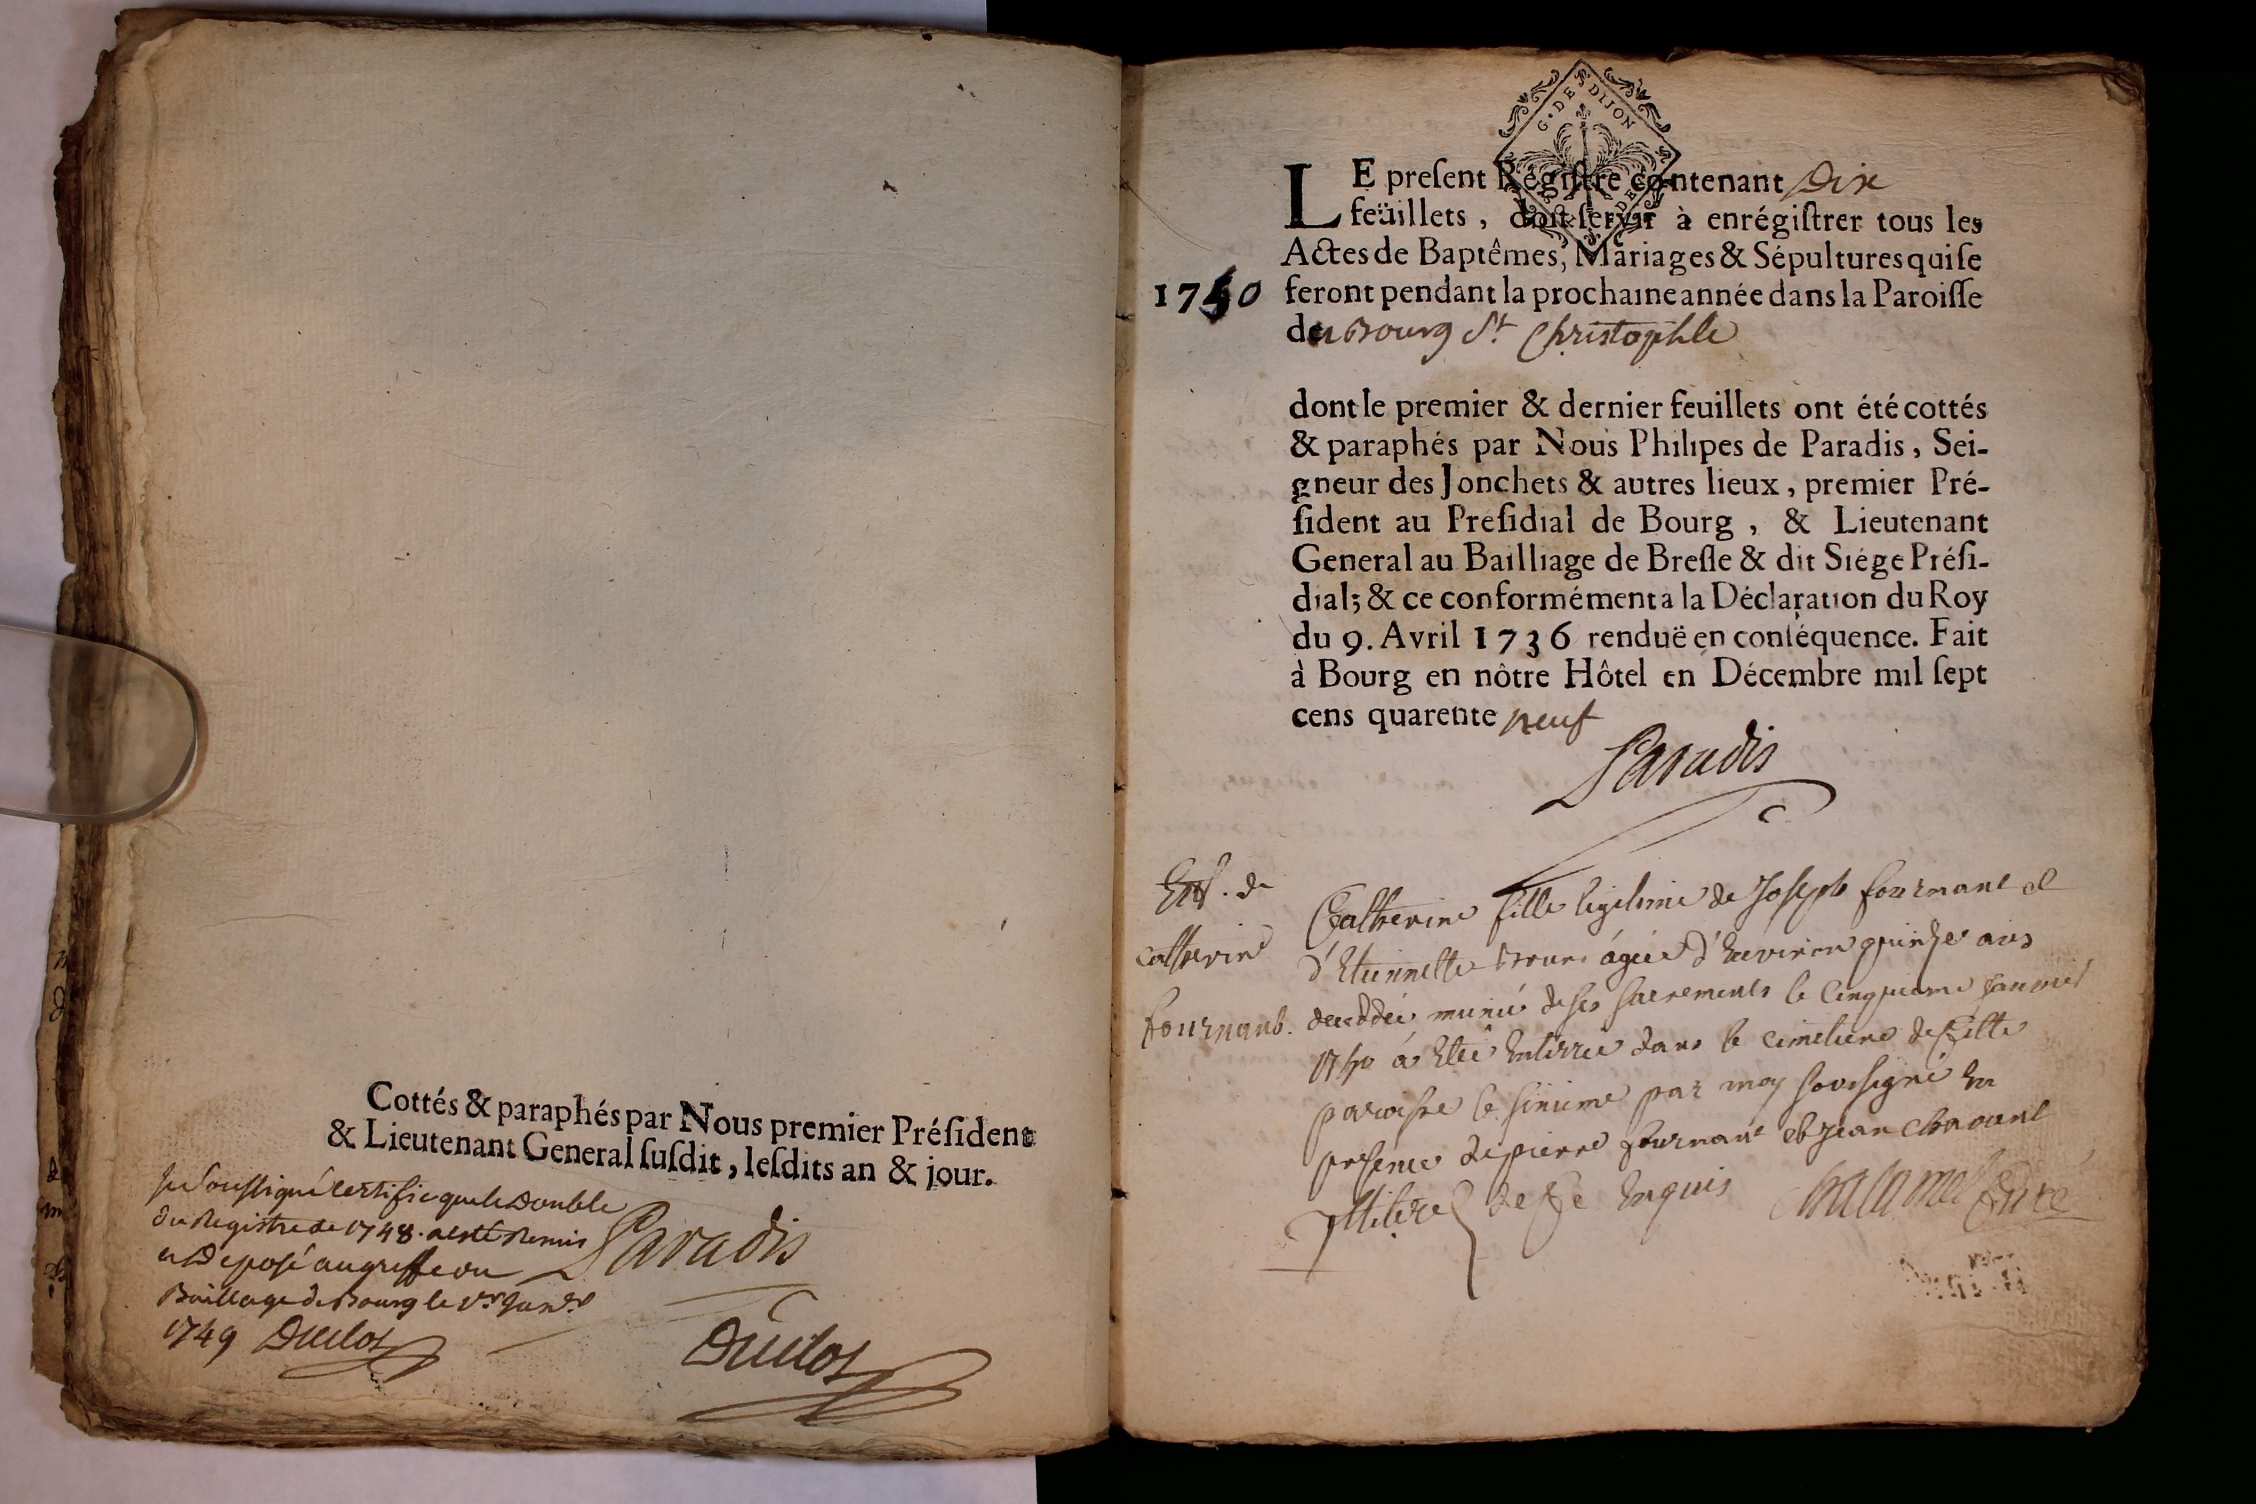 Cottés & paraphés par Nous premier Préſident
& Lieutenant General ſuſdit, leſdits an & jour.
Je Soussigné certifie que le Double
du Registre de 1748. a esté Remis
et Deposé au greffe du
Bailliage de Bourg le 1er Janer
1749 Duclos
Paradis
Duclos
G. DE DIJON
LE preſent Régiſtre contenant Dix
feüillets, doit ſervir à enrégiſtrer tous les
Actes de Baptêmes, Mariages & Sépultures qui ſe
1750 feront pendant la prochaine année dans la Paroiſſe
du Bourg St Christophle
dont le premier & dernier feuillets ont été cottés
& paraphés par Nous Philipes de Paradis, Sei-
gneur des Jonchets & autres lieux, premier Pré-
ſident au Préſidial de Bourg, & Lieutenant
General au Bailliage de Breſſe & dit Siége Préſi-
dial; & ce conformément à la Déclaration du Roy
du 9. Avril 1736 renduë en conſéquence. Fait
à Bourg en nôtre Hôtel en Décembre mil ſept
cens quarente neuf
Paradis
Ent. de
Catherine
fournant.
Catherine fille legitime de Joseph fournant et
d'Etiennette agée d'Environ quinze ans
decedée munie de ses sacrements le cinquieme janvier
1750 a eté Enterrée dans le cimetiere de cette
paroisse le sixieme par moy soussigné En
presence de pierre fournant et jean
illiterés de ce Enquis Chalamel Curé